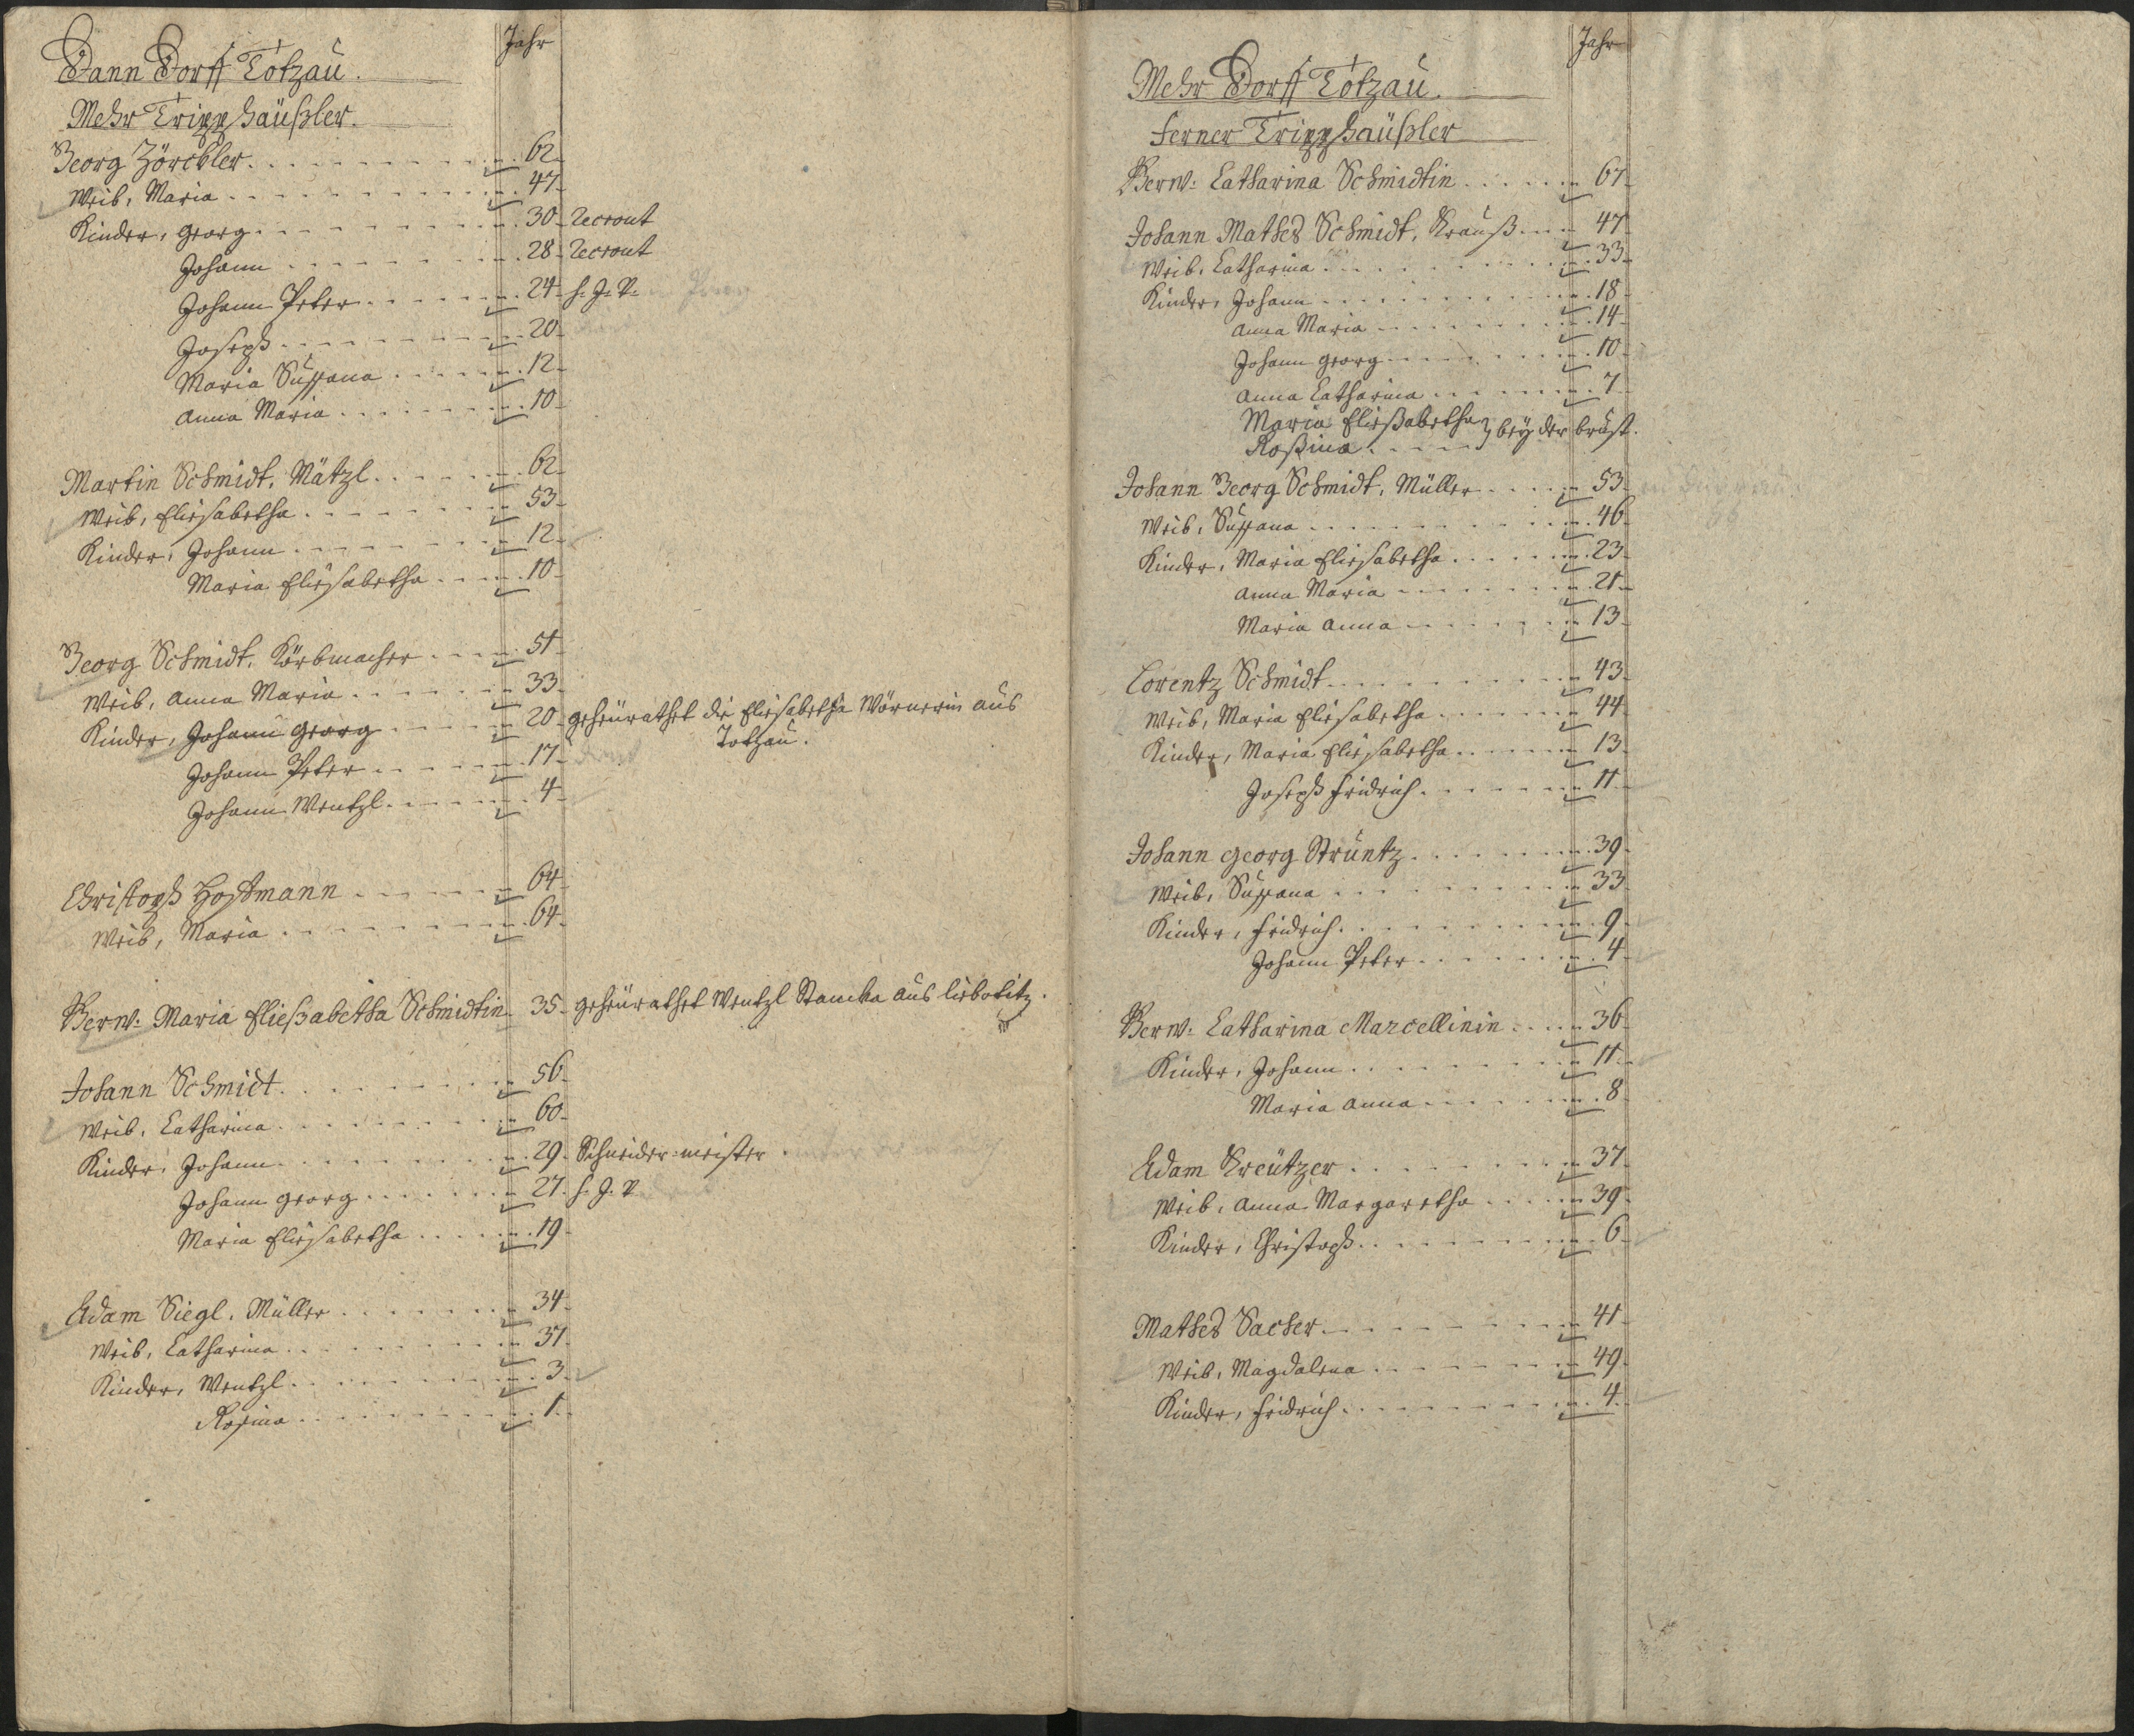 Jahr
Dann Dorff Totzau.
Mehr Tripphäußler.
Georg Zörckler. 62
Weib, Maria 47
Kinder, Georg 30 Recrout
Johann 28 Recrout
Johann Peter 24 h. J. P.
Joseph 20
Maria Sußana 12
Anna Maria 10
Martin Schmidt, Mätzl 62
Weib, Eliesabetha 53
Kinder, Johann 12
Maria Eliesabetha 10
Georg Schmidt, Körbmacher 51
Weib, Anna Maria 33
Kinder, Johann Georg 20 geheürathet die Eliesabetha Wörnerin aus
Totzau.
Johann Peter 17
Johann Wentzl 4
Christoph Hoffmann 64
Weib, Maria 64
Verw: Maria Eließabetha Schmidtin 35 geheürathet Wentzl Stanka aus liebotitz.
Johann Schmidt 56
Weib, Catharina 60
Kinder, Johann 29 Schneider-meister
Johann Georg 27 h. J. P.
Maria Eliesabetha 19
Adam Siegl, Müller 34
Weib, Catharina 31
Kinder, Wentzl 3
Rosina 1
Jahr
Mehr Dorff Totzau.
Ferner Tripphäußler
Verw: Catharina Schmidtin 67
Johann Mathes Schmidt, Krauß 47
Weib, Catharina 33
Kinder, Johann 18
Anna Maria 14
Johann Georg 10
Anna Catharina 7
Maria Eließabetha } bey der brust.
Roßina
Johann Georg Schmidt, Müller 53
Weib, Sußana 46
Kinder, Maria Eliesabetha 23
Anna Maria 21
Maria Anna 13
Lorentz Schmidt 43
Weib, Maria Eliesabetha 44
Kinder, Maria Eliesabetha 13
Joseph Fridrich 11
Johann Georg Strüntz 39
Weib, Sußana 33
Kinder, Fridrich 9
Johann Peter 4
Verw: Catharina Marcellinin 36
Kinder, Johann 11
Maria Anna 8
Adam Kreützer 37
Weib, Anna Margaretha 39
Kinder, Christoph 6
Mathes Sacher 41
Weib, Magdalena 49
Kinder, Fridrich 4